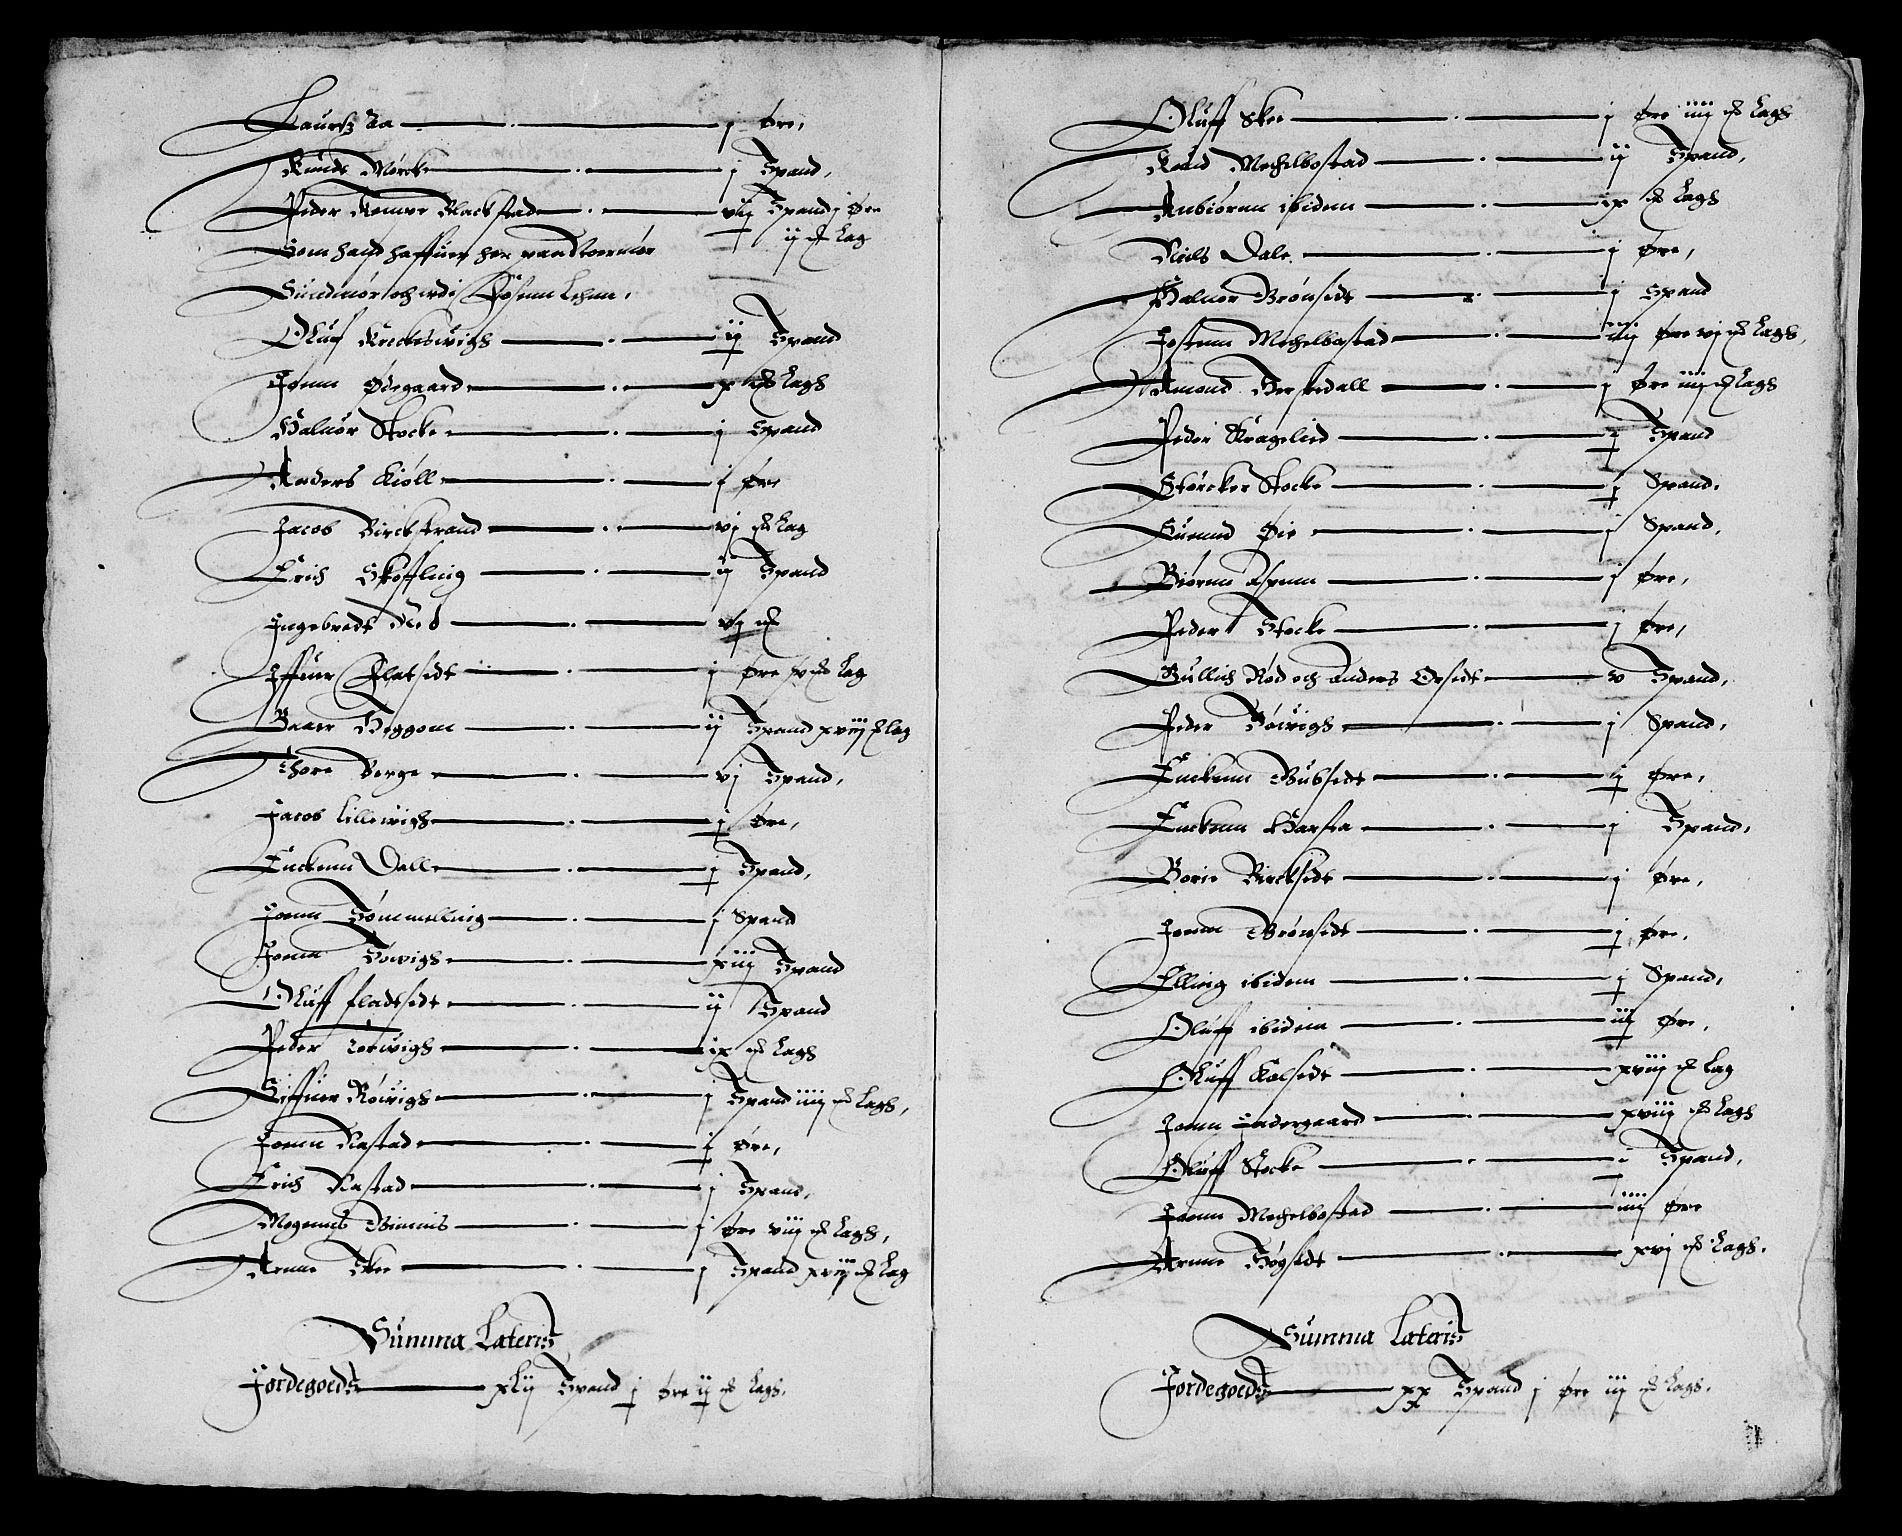 Laurß Aa — j øre,
Knudt Mörck — j Spand,
Peder Kempe Blackstad — vij Spand j Øre
ij ℔ Lag
Som hand haffuer her
Sundmør och Lehnn,
Oluf — iij Spand
Joenn Ødegaard — x ℔ Lags
Haluor Stocke — j Spand
Anders Kiøll — j øre
Jacob Birckstrand — vj ℔ Lag
Erich Skofling — ij Spand
Ingebredt Rød — vj ℔
Iffuer Flatsedt — j øre ℔ Lag
Baar Heggom — ij Spand xviij ℔ Lag
Thore Berge — vj Spand,
Jacob Lilleuigh — j øre,
Enckenn Dall — j Spand,
Joenn Tømmelling — j Spand
Joenn — xiij Spand
Oluff Fladtsedt — ij Spand
Peder — ix ℔ Lags
Siffuer Röiuigh — j Spand iiij ℔ Lags,
Joenn Rastad — j øre,
Erich Rastad — j Spand,
Mogenns — j øre viij ℔ Lags,
Arnne Skee — j Spand xviij ℔ Lag
Summa Lateris
Jordegoeds — xlij Spand j øre ij ℔ Lags,
Oluff Skee — j øre iiij ℔ Lags
Knud Mechelbostad — ij Spand,
Anbiörnn ibidem — ix ℔ Lags
Niels Dale — j øre,
Haluor Brönsedt — j Spand
Jostenn Mechelbostad — iiij øre vj ℔ Lags,
Amond — j øre iiij ℔ Lags
Peder Kragelied — j Spand
Störcker Stocke — j Spand,
Suennd Øie — j Spand,
Biörnn Aspenn — j øre,
Peder Stocke — j øre,
Gullich Rød och Anders Orsedt — v Spand,
Peder — j Spand,
Enckenn Gudsedt — ij øre,
Enckenn Harsta — j Spand,
Borie Bircksedt — j øre,
Joenn Brönsedt — j øre,
Elling ibidem — j Spand,
Oluff ibidem — iij øre,
Oluff Kalsedt — xviij ℔ Lag
Joenn Endergaard — xviij ℔ Lags
Oluff Stocke — i Spand,
Joenn Mechelbostad — iiij øre
Arnne — xvj ℔ Lags,
Summa Lateris
Jordegoeds — xx Spand j øre iij ℔ Lags.